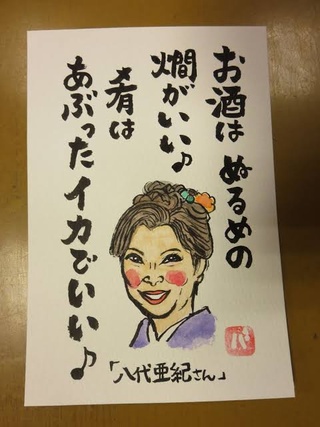 お酒は ぬるめの
燗がいい♪
肴は
あぶったイカでいい♪
「八代亜紀さん」